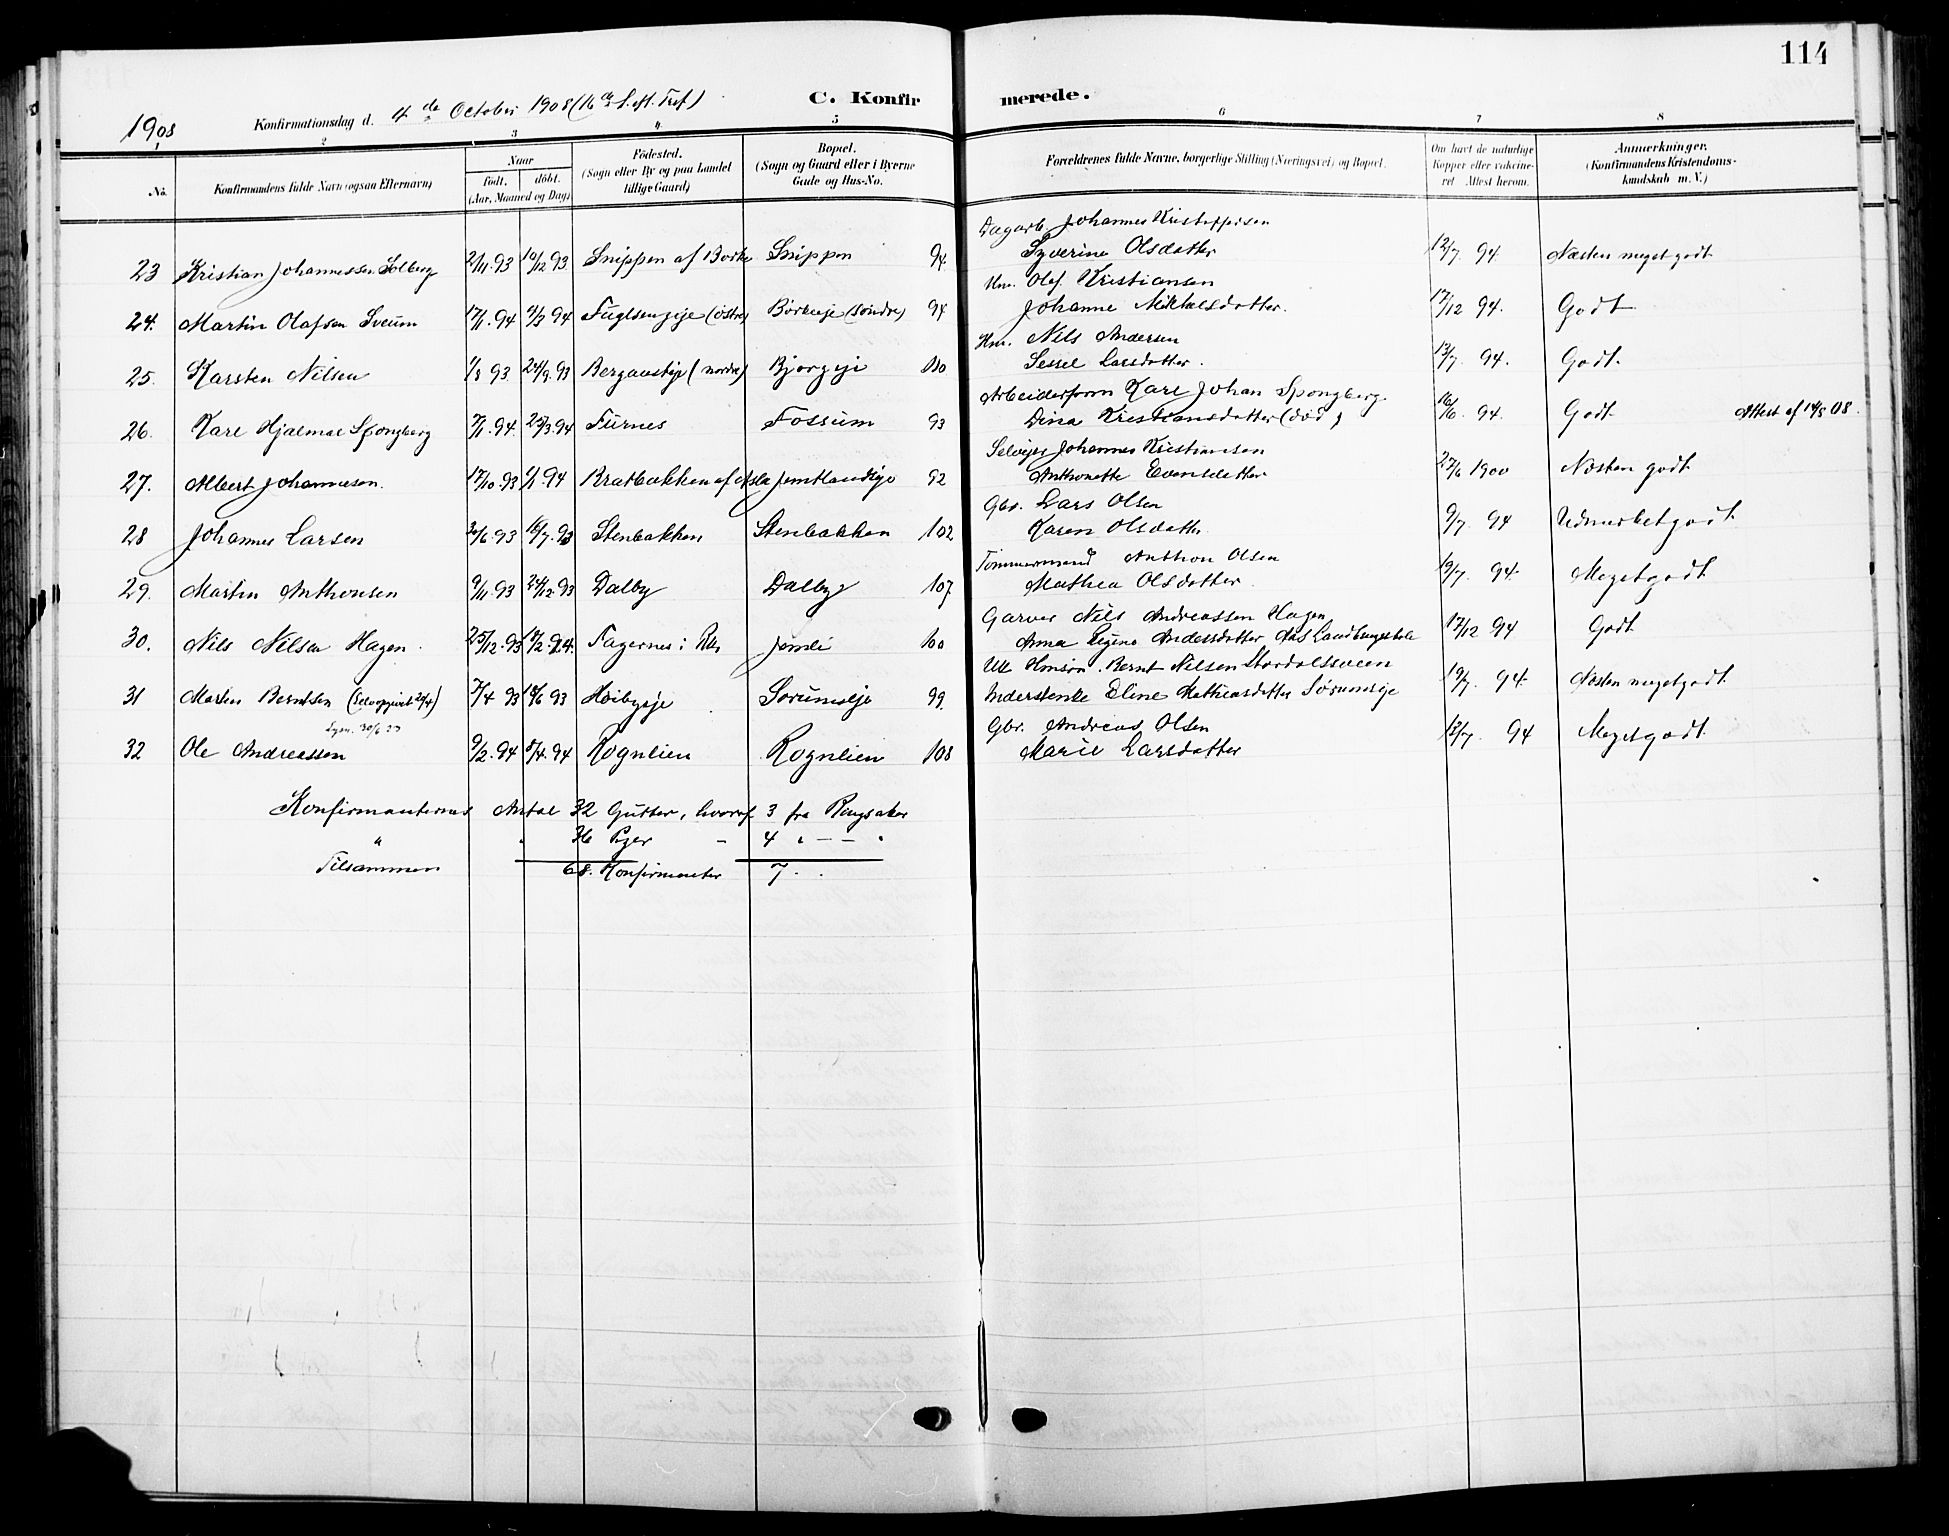 114
C. Konfirmerede.
1908
Konfirmationsdag d. 4de October 1908 (16de S. eft. Tref.)
2 3 4 5 6 7 8
No.
Konfirmandens fulde Navn (ogsaa Efternavn)
Naar
födt. döbt.
(Aar, Maaned og Dag)
Födested.
(Sogn eller By og paa Landet
tillige Gaard)
Bopæl.
(Sogn og Gaard eller i Byerne
Gade og Hus-No.
Forældrenes fulde Navne, borgerlige Stilling (Næringsvei) og Bopæl.
Om havt de naturlige
Kopper eller vakcine-
ret Attest herom.
Anmærkninger.
(Konfirmandens Kristendoms-
kundskab m. V.)
Dagarb. Johannes Kristoffersen
23 Kristian Johannessen Solberg 2/11.93 10/12 93 Snippen af Borke Snippen 94 Syverine Olsdatter 12/7 94 Næsten meget godt
Hm. Olaf Kristiansen
24. Martin Olafsen Sveum 17/1.94 4/3 94 Fuglsengeje (östre) Börkeeje (söndre) 94 Johanne Mikkelsdatter. 17/12 94. Godt
Hm. Nils Andersen
25. Karsten Nilsen 1/8 93 24/9.93 Bergauseje (nordre) Bjorgeje 110 Sessel Larsdatter. 13/7 94. Godt.
Arbeiderform Karl Johan Spongberg.
26. Karl Hjalmar Spongberg 7/1.94. 25/3.94 Furnes Fossum 93 Dina Kristiansdatter (död) 16/6 94. Godt Attest af 14/5 08.
Selvejer Johannes Kristiansen
27. Albert Johannesen. 17/10.93 1/1 94 Bratbakken af Jemtlandeje 92 Anthonette Evensdatter 27/6 1900 Næsten godt
Gbr. Lars Olsen
28 Johannes Larsen 30/6.93 16/7.93 Stenbakken Stenbakken 102 Karen Olsdatter 9/7 94 Udmærket godt
Tömmermand Anthon Olsen
29. Martin Anthonsen 9/11 93 24/12.93 Dalby Dalby 107 Mathea Olsdatter. 19/7. 94. Meget godt
Garver Nils Andreassen Hagen
30. Nils Nilsen Hagen. 25/12.93 18/2.94. Fagernes i Jemli 100 Anna Andersdatter 17/12 94 Godt
Hmsön. Bernt Nilsen Stordalssveen
31 Martin Berntsen 7/4 93 18/6 93 Höibyeje Sorumseje 99. Inderstenke Eline Mathiasdatter Sörumseje 19/7. 94. Næsten meget godt
Gbr. Andreas Olsen
32 Ole Andreassen 9/2.94 8/4.94 Rognlien Rognlien 108 Marie Larsdatter 12/7. 94 Meget godt
Konfirmanternes Antal 32 Gutter, hvoraf 3 fra Ringsaker
" 36 Piger - 4 " — — "
Tilsammen 68. Konfirmanter 7.